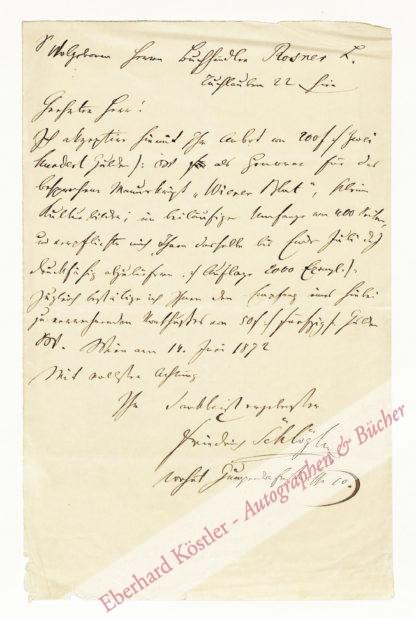 Sr Wolgeboren Herrn Buchhändler Rosner L.
Tuchlauben 22 hier
Geehrter Herr!
Ich akzeptire hiemit Ihr Anbot von 200 f (zwei
hundert Gulden): ÖW als Honorar für das
besprochene Manuskript „Wiener Blut“, kleine
Kulturbilder, im beiläufigen Umfange von 400 Seiten,
und verpflichte mich, Ihnen dasselbe bis Ende Juli d J
druckfähig abzuliefern. (: Auflage 2000 Exempl. :)
Zugleich bestätige ich Ihnen den Empfang eines hiebei
zu verrechnenden Vorschußes von 50 f (: fünfzig :) Gulden
ÖW. Wien am 14. Juni 1872
Mit vollster Achtung
Ihr dankbarst ergebenster
Friedrich Schlögl
wohnt Gumpendorf 10.
Eberhard Köstler - Autographen & Bücher